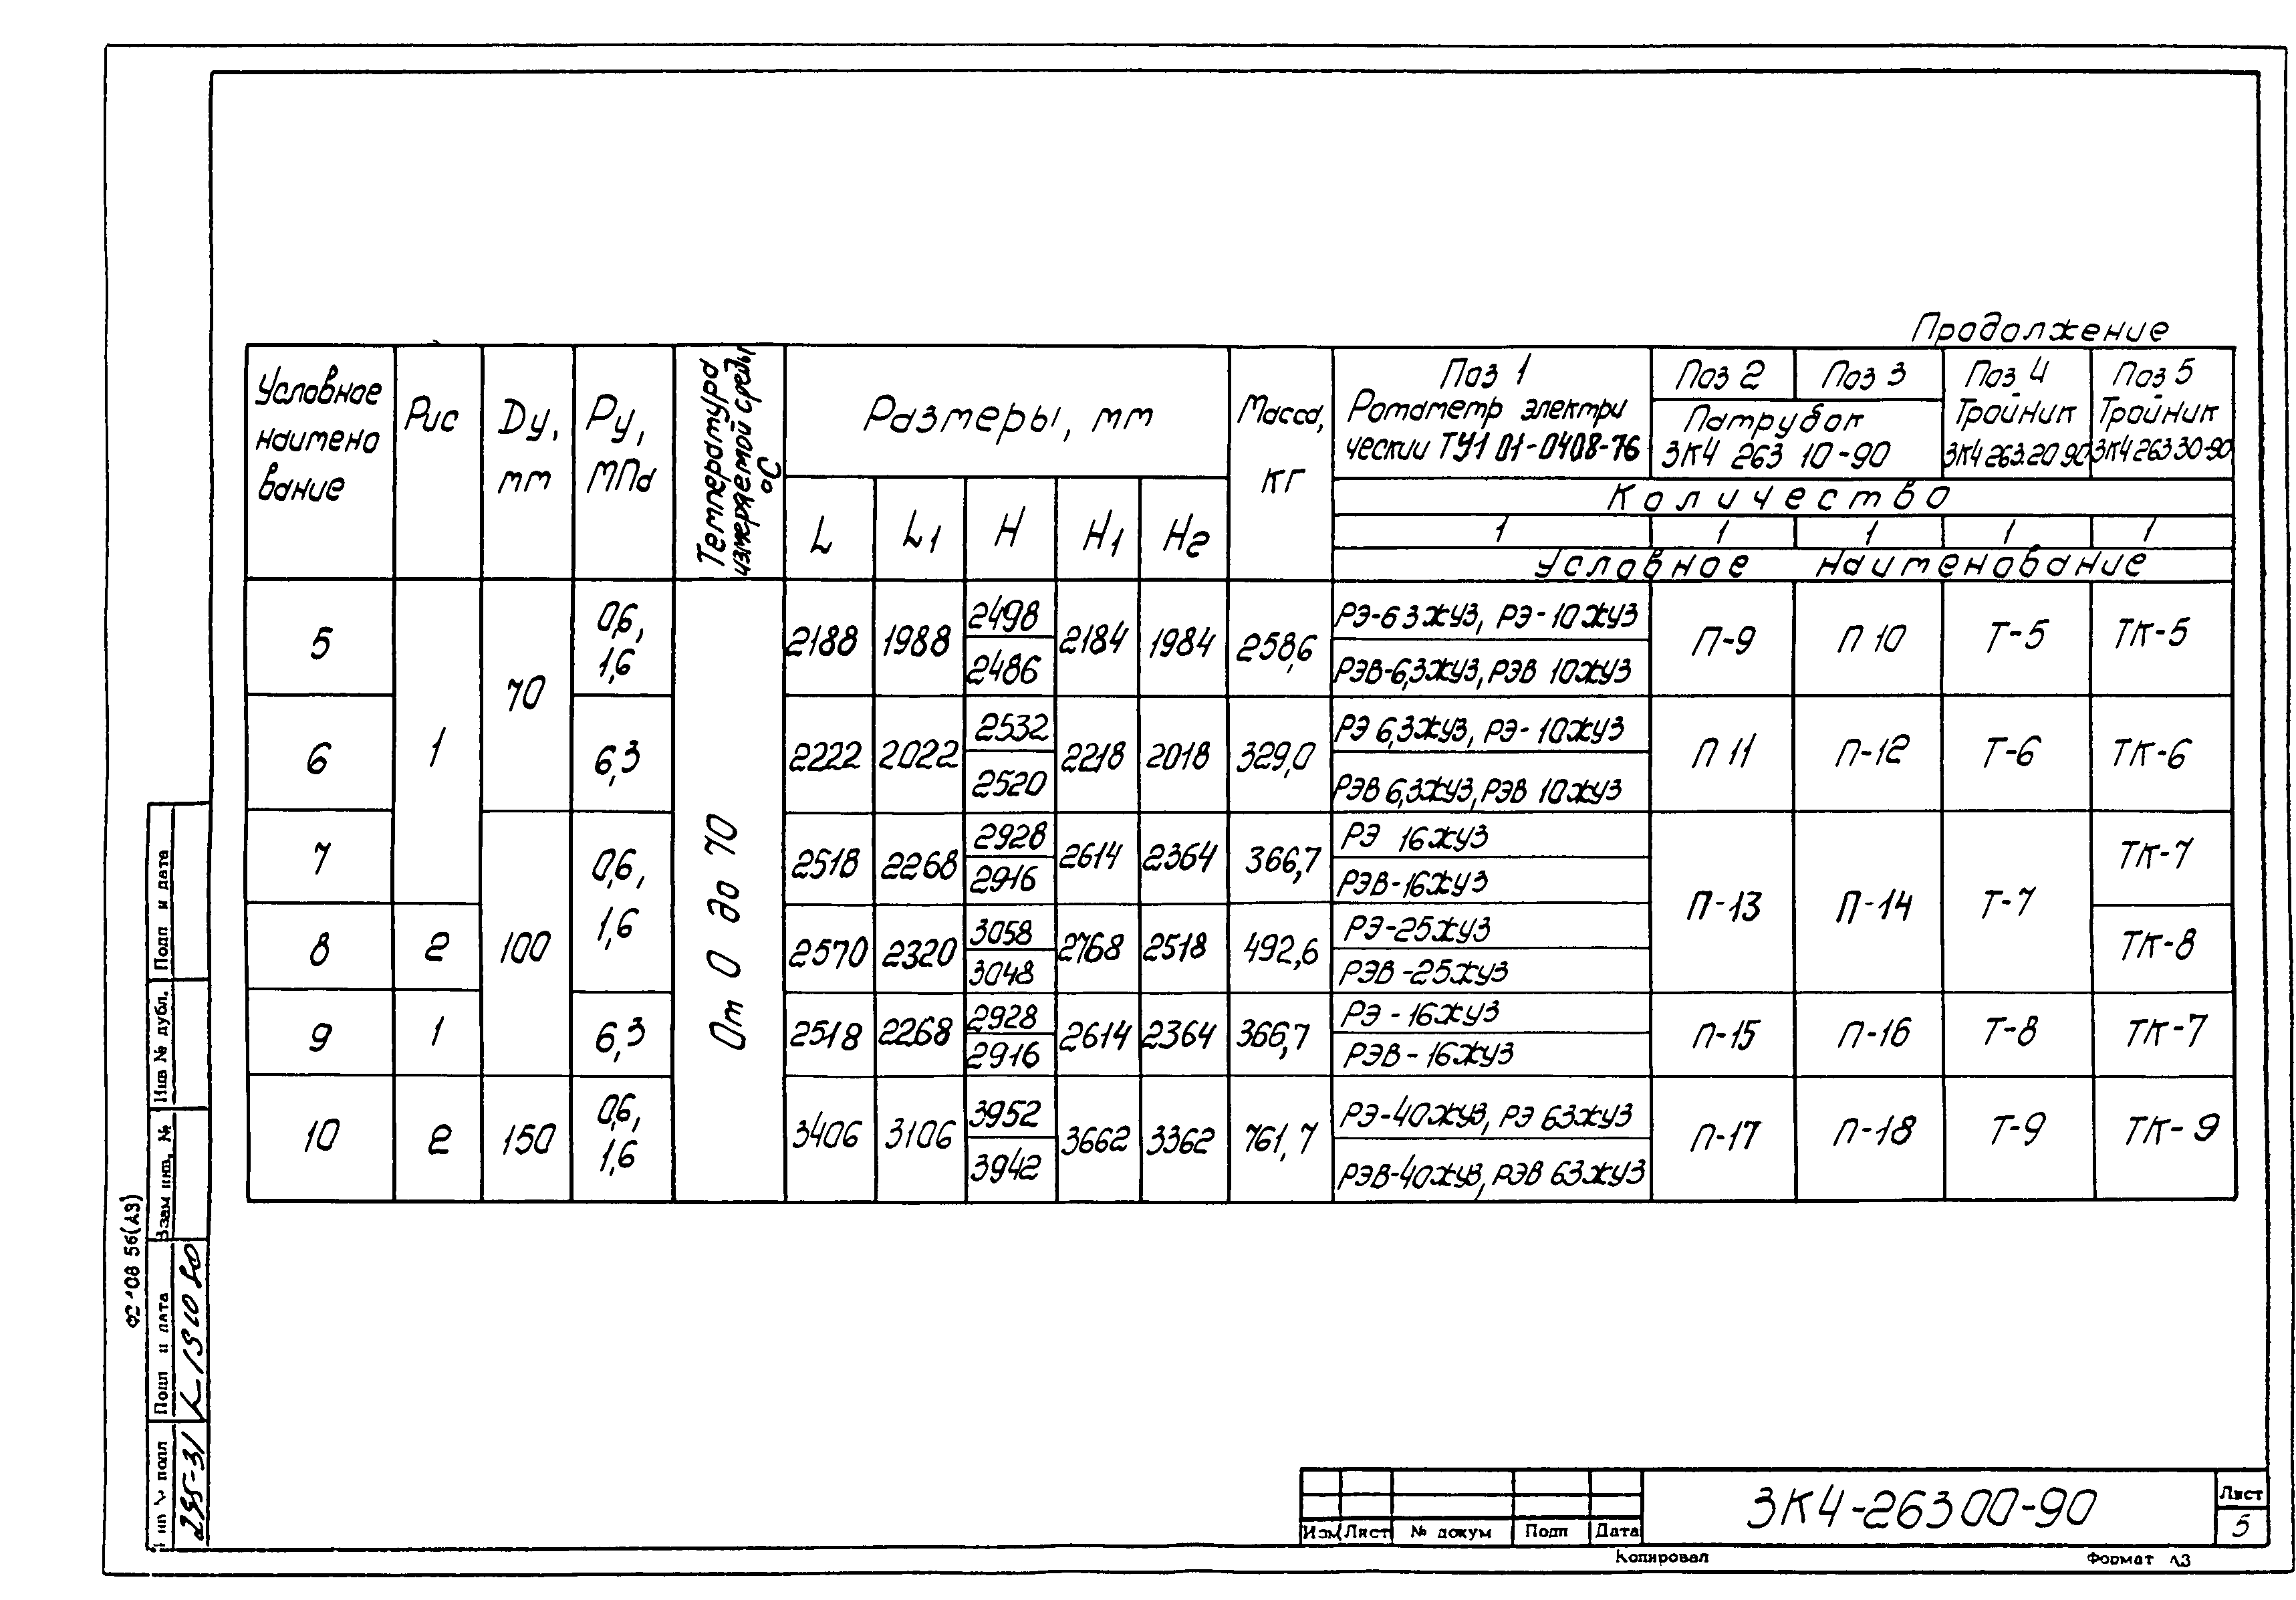 Продолжение
Условное наимено вание
Рис
Dу, мм
Ру, МПа
Температура измеряемой среды °С
Размеры, мм
L L1 H H1 H2
Масса, кг
Поз 1 Ротаметр электри ческий ТУ1 01-0408-76
Поз 2 Поз 3
Патрубок ЗК4 263 10-90
Поз 4 Тройник ЗК4 263.20 90
Поз 5 Тройник ЗК4 263 30-90
Количество
1 1 1 1 1
Условное наименование
От 0 до 70
5 1 70 0,6, 1,6 2188 1988 2498 2486 2184 1984 258,6 РЭ-6 3ЖУЗ, РЭ-10ЖУЗ РЭВ-6,3ЖУЗ, РЭВ 10ЖУЗ П-9 П 10 Т-5 ТК-5
6 6,3 2222 2022 2532 2520 2218 2018 329,0 РЭ 6,3ЖУЗ, РЭ-10ЖУЗ РЭВ 6,3ЖУЗ, РЭВ 10ЖУЗ П 11 П-12 Т-6 ТК-6
7 100 0,6, 1,6 2518 2268 2928 2916 2614 2364 366,7 РЭ 16ЖУЗ РЭВ-16ЖУЗ П-13 П-14 Т-7 ТК-7
8 2 2570 2320 3058 3048 2768 2518 492,6 РЭ-25ЖУЗ РЭВ-25ЖУЗ ТК-8
9 1 6,3 2518 2268 2928 2916 2614 2364 366,7 РЭ-16ЖУЗ РЭВ-16ЖУЗ П-15 П-16 Т-8 ТК-7
10 2 150 0,6, 1,6 3406 3106 3952 3942 3662 3362 761,7 РЭ-40ЖУЗ, РЭ 63ЖУЗ РЭВ-40ЖУЗ, РЭВ 63ЖУЗ П-17 П-18 Т-9 ТК-9
Подп и дата
Инв № дубл.
Взам инв. №
Подп и дата
подл
295-31
56(А3)
Изм Лист № докум Подп Дата
ЗК4-26300-90
Лист
5
Копировал
Формат А3